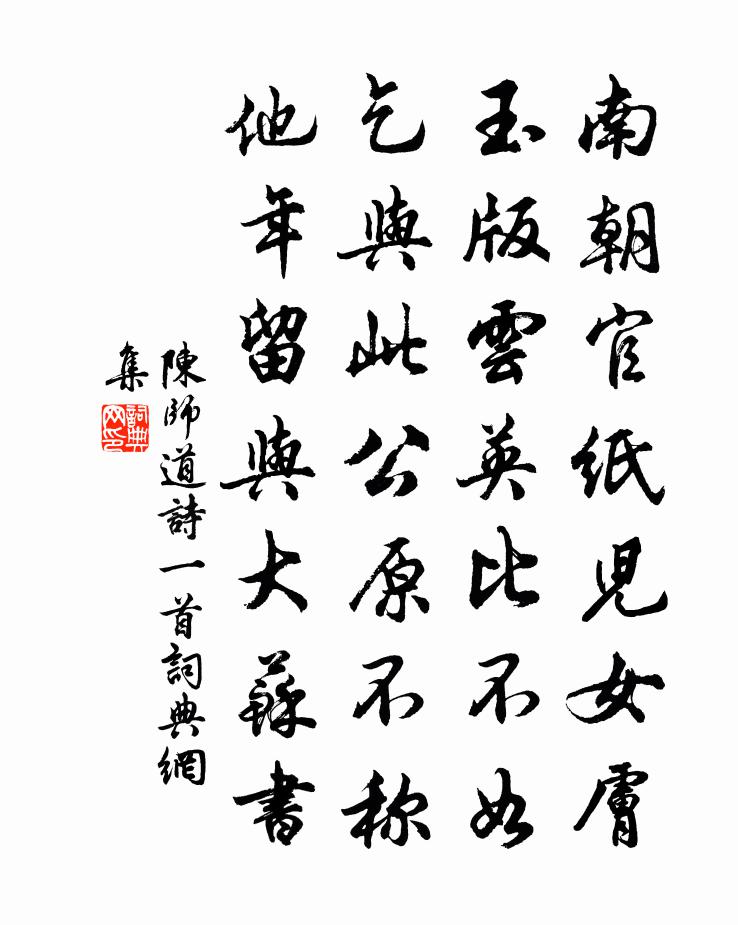 南朝官紙兒女膚
玉版雲英比不如
乞與此公原不称
他年留與大蘇書
陳師道詩一首詞典網
集
詞典
网印